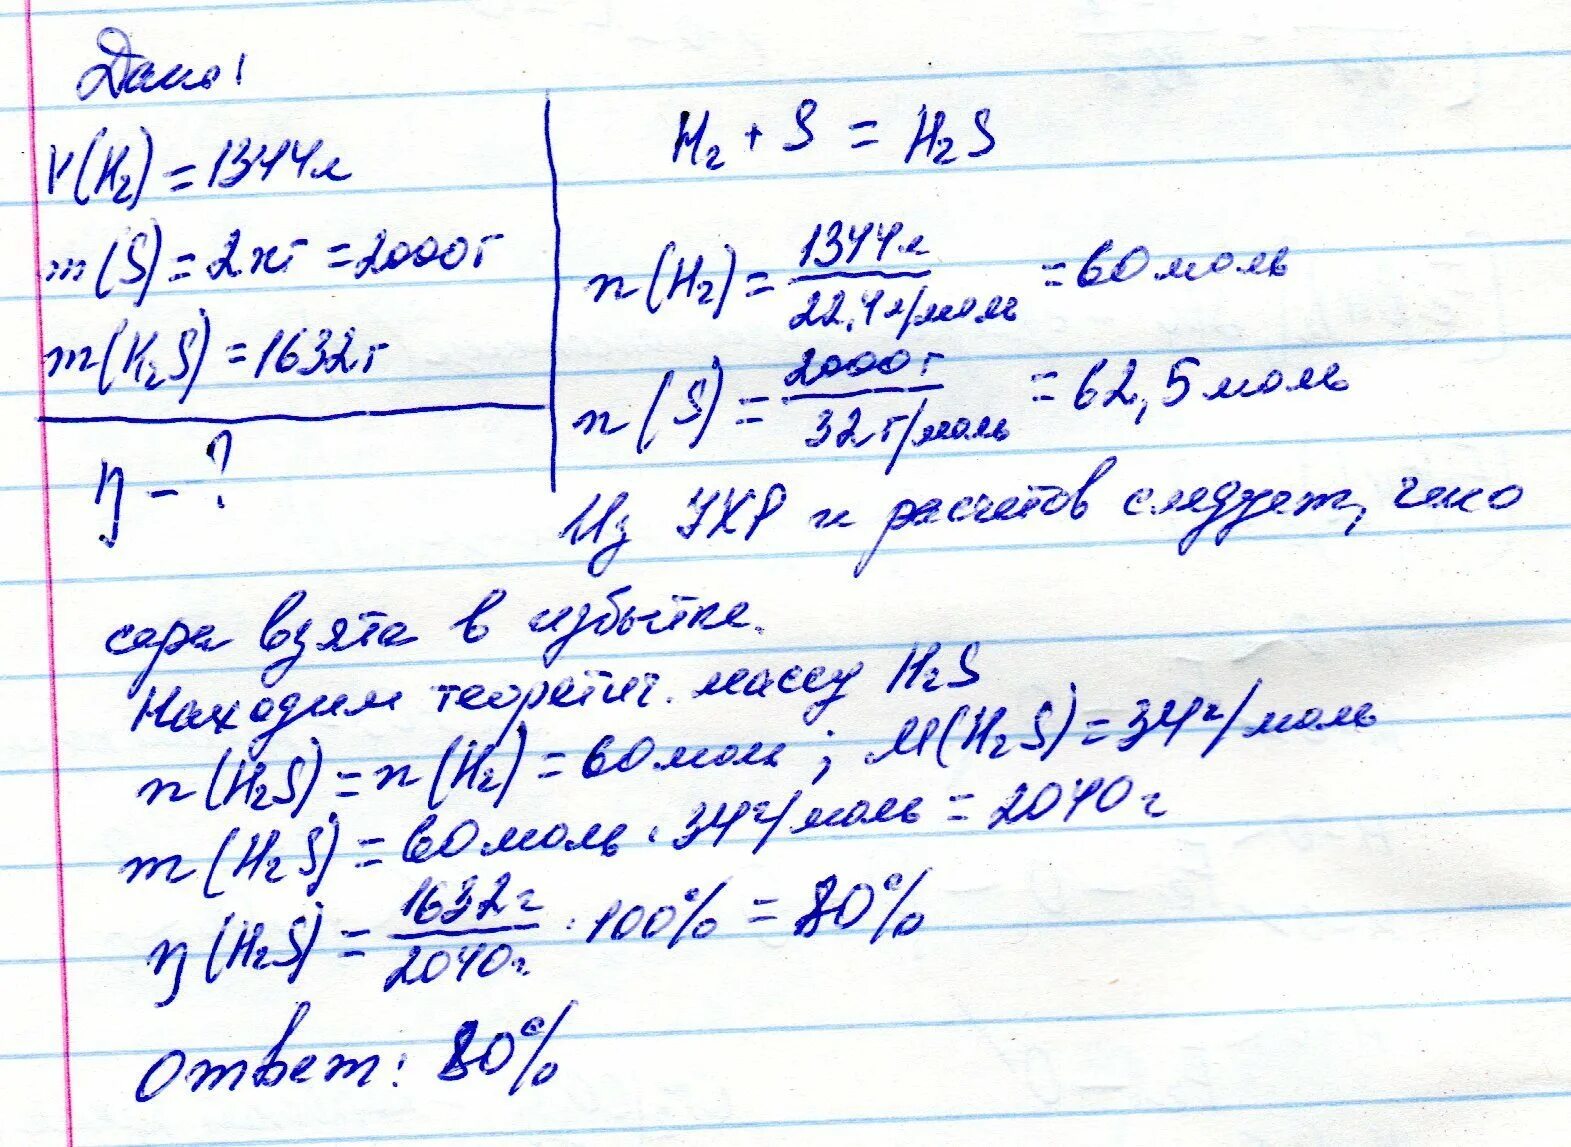 Дано:
V(H₂) = 1344л
m(S) = 2кг = 2000г
m(H₂S) = 1632г
η - ?
H₂ + S = H₂S
n(H₂) = 1344л / 22,4л/моль = 60моль
n(S) = 2000г / 32г/моль = 62,5моль
Из УХР и расчетов следует, что
сера взята в избытке.
Находим теоретич. массу H₂S
n(H₂S) = n(H₂) = 60моль; M(H₂S) = 34г/моль
m(H₂S) = 60моль · 34г/моль = 2040г
η(H₂S) = 1632г / 2040г · 100% = 80%
Ответ: 80%